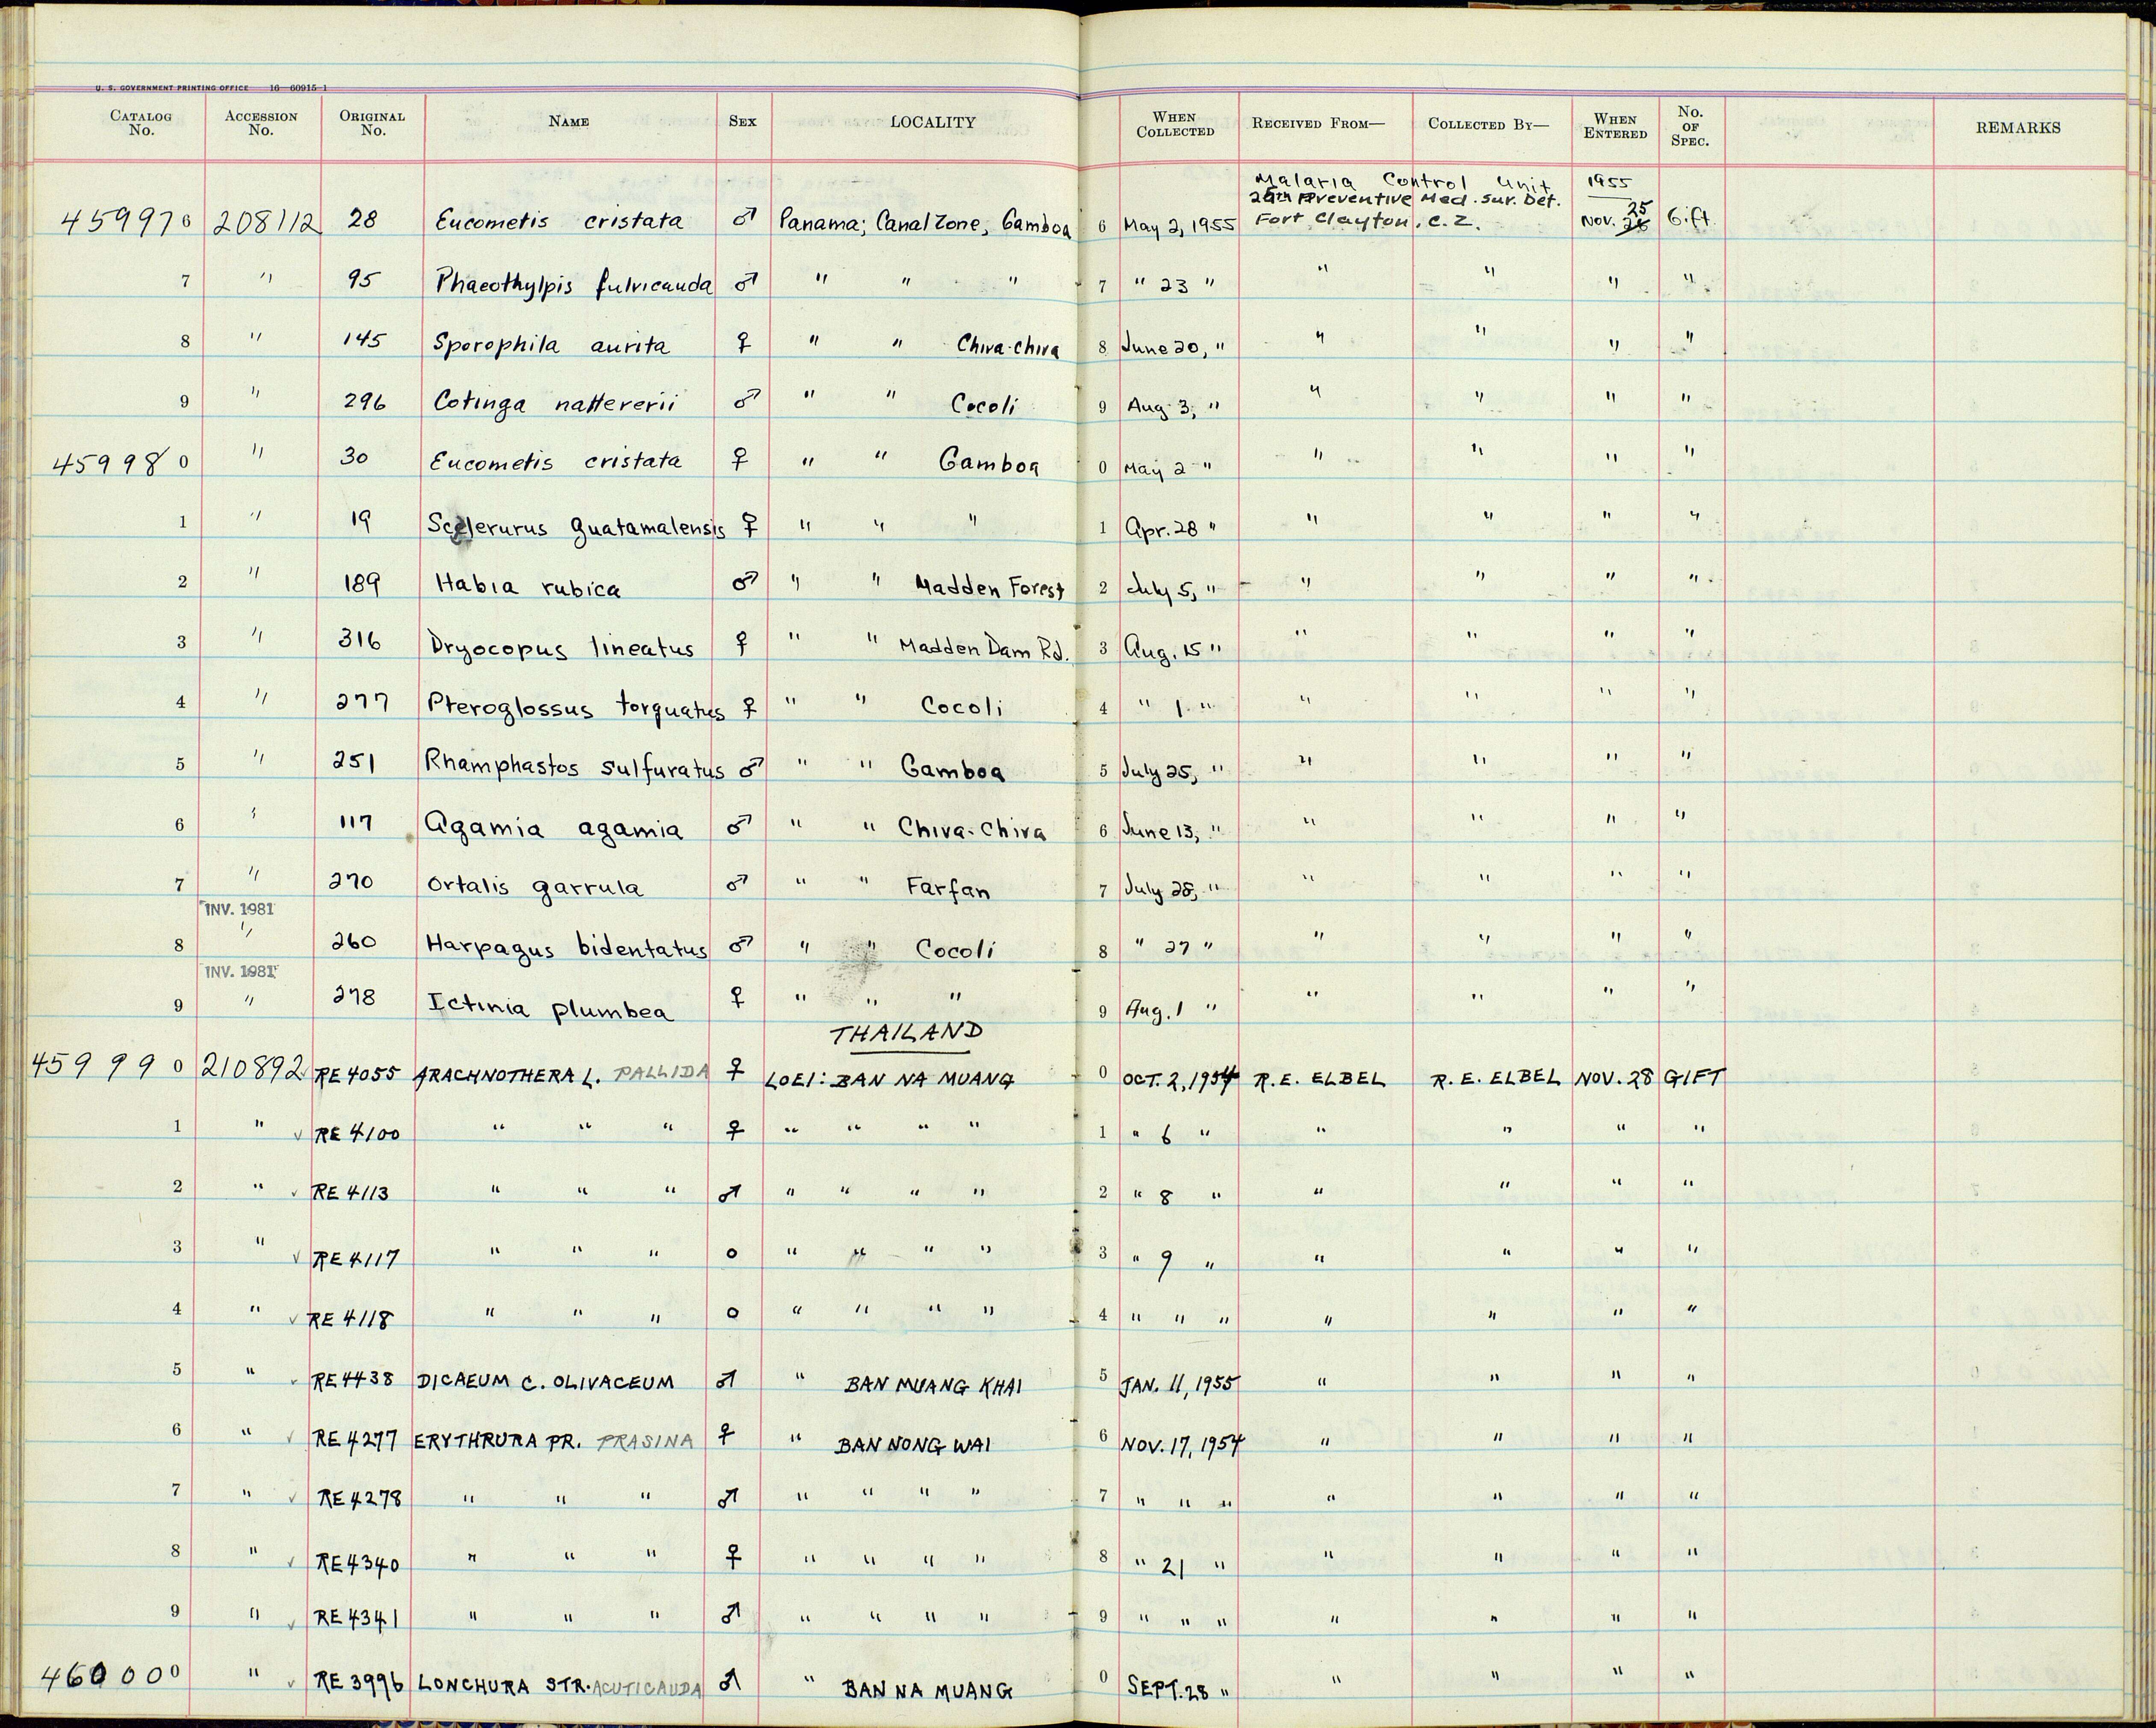 U. S. GOVERNMENT PRINTING OFFICE 16—60915-1
CATALOG No. ACCESSION No. ORIGINAL No. NAME SEX LOCALITY WHEN COLLECTED RECEIVED FROM— COLLECTED BY— WHEN ENTERED No. OF SPEC. REMARKS
Malaria Control Unit 1955
25th Preventive Med. Sur. Det. 25
459976 208112 28 Eucometis cristata ♂ Panama; Canal Zone, Gamboa 6 May 2, 1955 Fort Clayton, C.Z. Nov. 28 Gift
7 " 95 Phaeothylpis fulvicauda ♂ " " " 7 " 23 " " " " "
8 " 145 Sporophila aurita ♀ " " Chiva-chiva 8 June 20, " " " " "
9 " 296 Cotinga nattererii ♂ " " Cocoli 9 Aug 3, " " " " "
459980 " 30 Eucometis cristata ♀ " " Gamboa 0 May 2 " " " " "
1 " 19 Sclerurus guatamalensis ♀ " " " 1 Apr. 28 " " " " "
2 " 189 Habia rubica ♂ " " Madden Forest 2 July 5, " " " " "
3 " 316 Dryocopus lineatus ♀ " " Madden Dam Rd. 3 Aug. 15 " " " " "
4 " 277 Pteroglossus torquatus ♀ " " Cocoli 4 " 1 " " " " "
5 " 251 Rhamphastos sulfuratus ♂ " " Gamboa 5 July 25, " " " " "
6 " 117 Agamia agamia ♂ " " Chiva-Chiva 6 June 13, " " " " "
7 " 270 Ortalis garrula ♂ " " Farfan 7 July 28, " " " " "
INV. 1981
8 " 260 Harpagus bidentatus ♂ " " Cocoli 8 " 27 " " " " "
INV. 1981
9 " 278 Ictinia plumbea ♀ " " " 9 Aug. 1 " " " " "
THAILAND
459990 210892 RE 4055 ARACHNOTHERA L. PALLIDA ♀ LOEI: BAN NA MUANG 0 OCT. 2, 1954 R. E. ELBEL R. E. ELBEL NOV. 28 GIFT
1 " √ RE 4100 " " " ♀ " " " " 1 " 6 " " " " "
2 " √ RE 4113 " " " ♂ " " " " 2 " 8 " " " " "
3 " √ RE 4117 " " " O " " " " 3 " 9 " " " " "
4 " √ RE 4118 " " " O " " " " 4 " " " " " " "
5 " √ RE 4438 DICAEUM C. OLIVACEUM ♂ " BAN MUANG KHAI 5 JAN. 11, 1955 " " " "
6 " √ RE 4277 ERYTHRURA PR. PRASINA ♀ " BAN NONG WAI 6 NOV. 17, 1954 " " " "
7 " √ RE 4278 " " " ♂ " " " " 7 " " " " " " "
8 " √ RE 4340 " " " ♀ " " " " 8 " 21 " " " " "
9 " √ RE 4341 " " " ♂ " " " " 9 " " " " " " "
460000 " √ RE 3996 LONCHURA STR. ACUTICAUDA ♂ " BAN NA MUANG 0 SEPT. 28 " " " " "